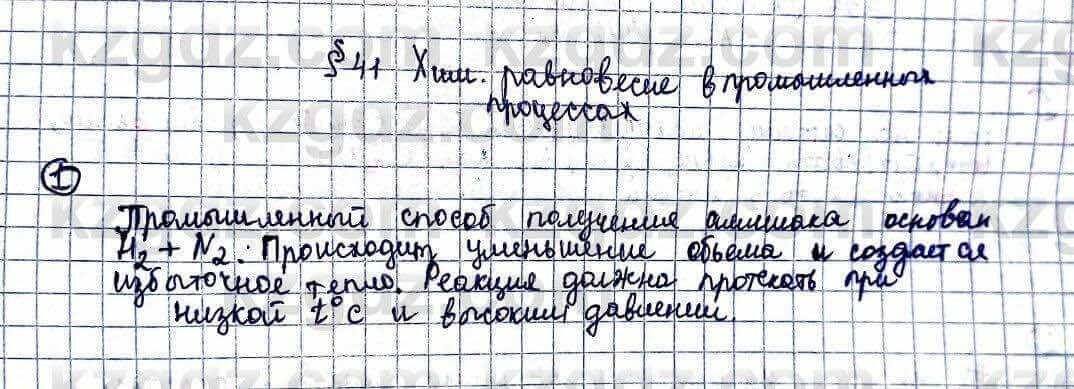 § 41 Хим. равновесие в промышленных
процессах
1
Промышленный способ получения аммиака основан
H2 + N2. Происходит уменьшение объема и создается
избыточное тепло. Реакция должна протекать при
низкой t°c и высоким давлении.
kzgdz.com